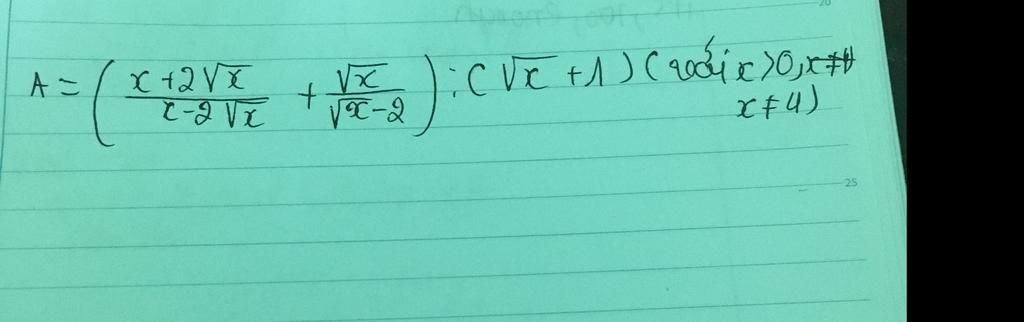 A = ( \frac{x + 2\sqrt{x}}{x - 2\sqrt{x}} + \frac{\sqrt{x}}{\sqrt{x} - 2} ) : ( \sqrt{x} + 1 ) ( với x > 0, x ≠
x ≠ 4 )
25